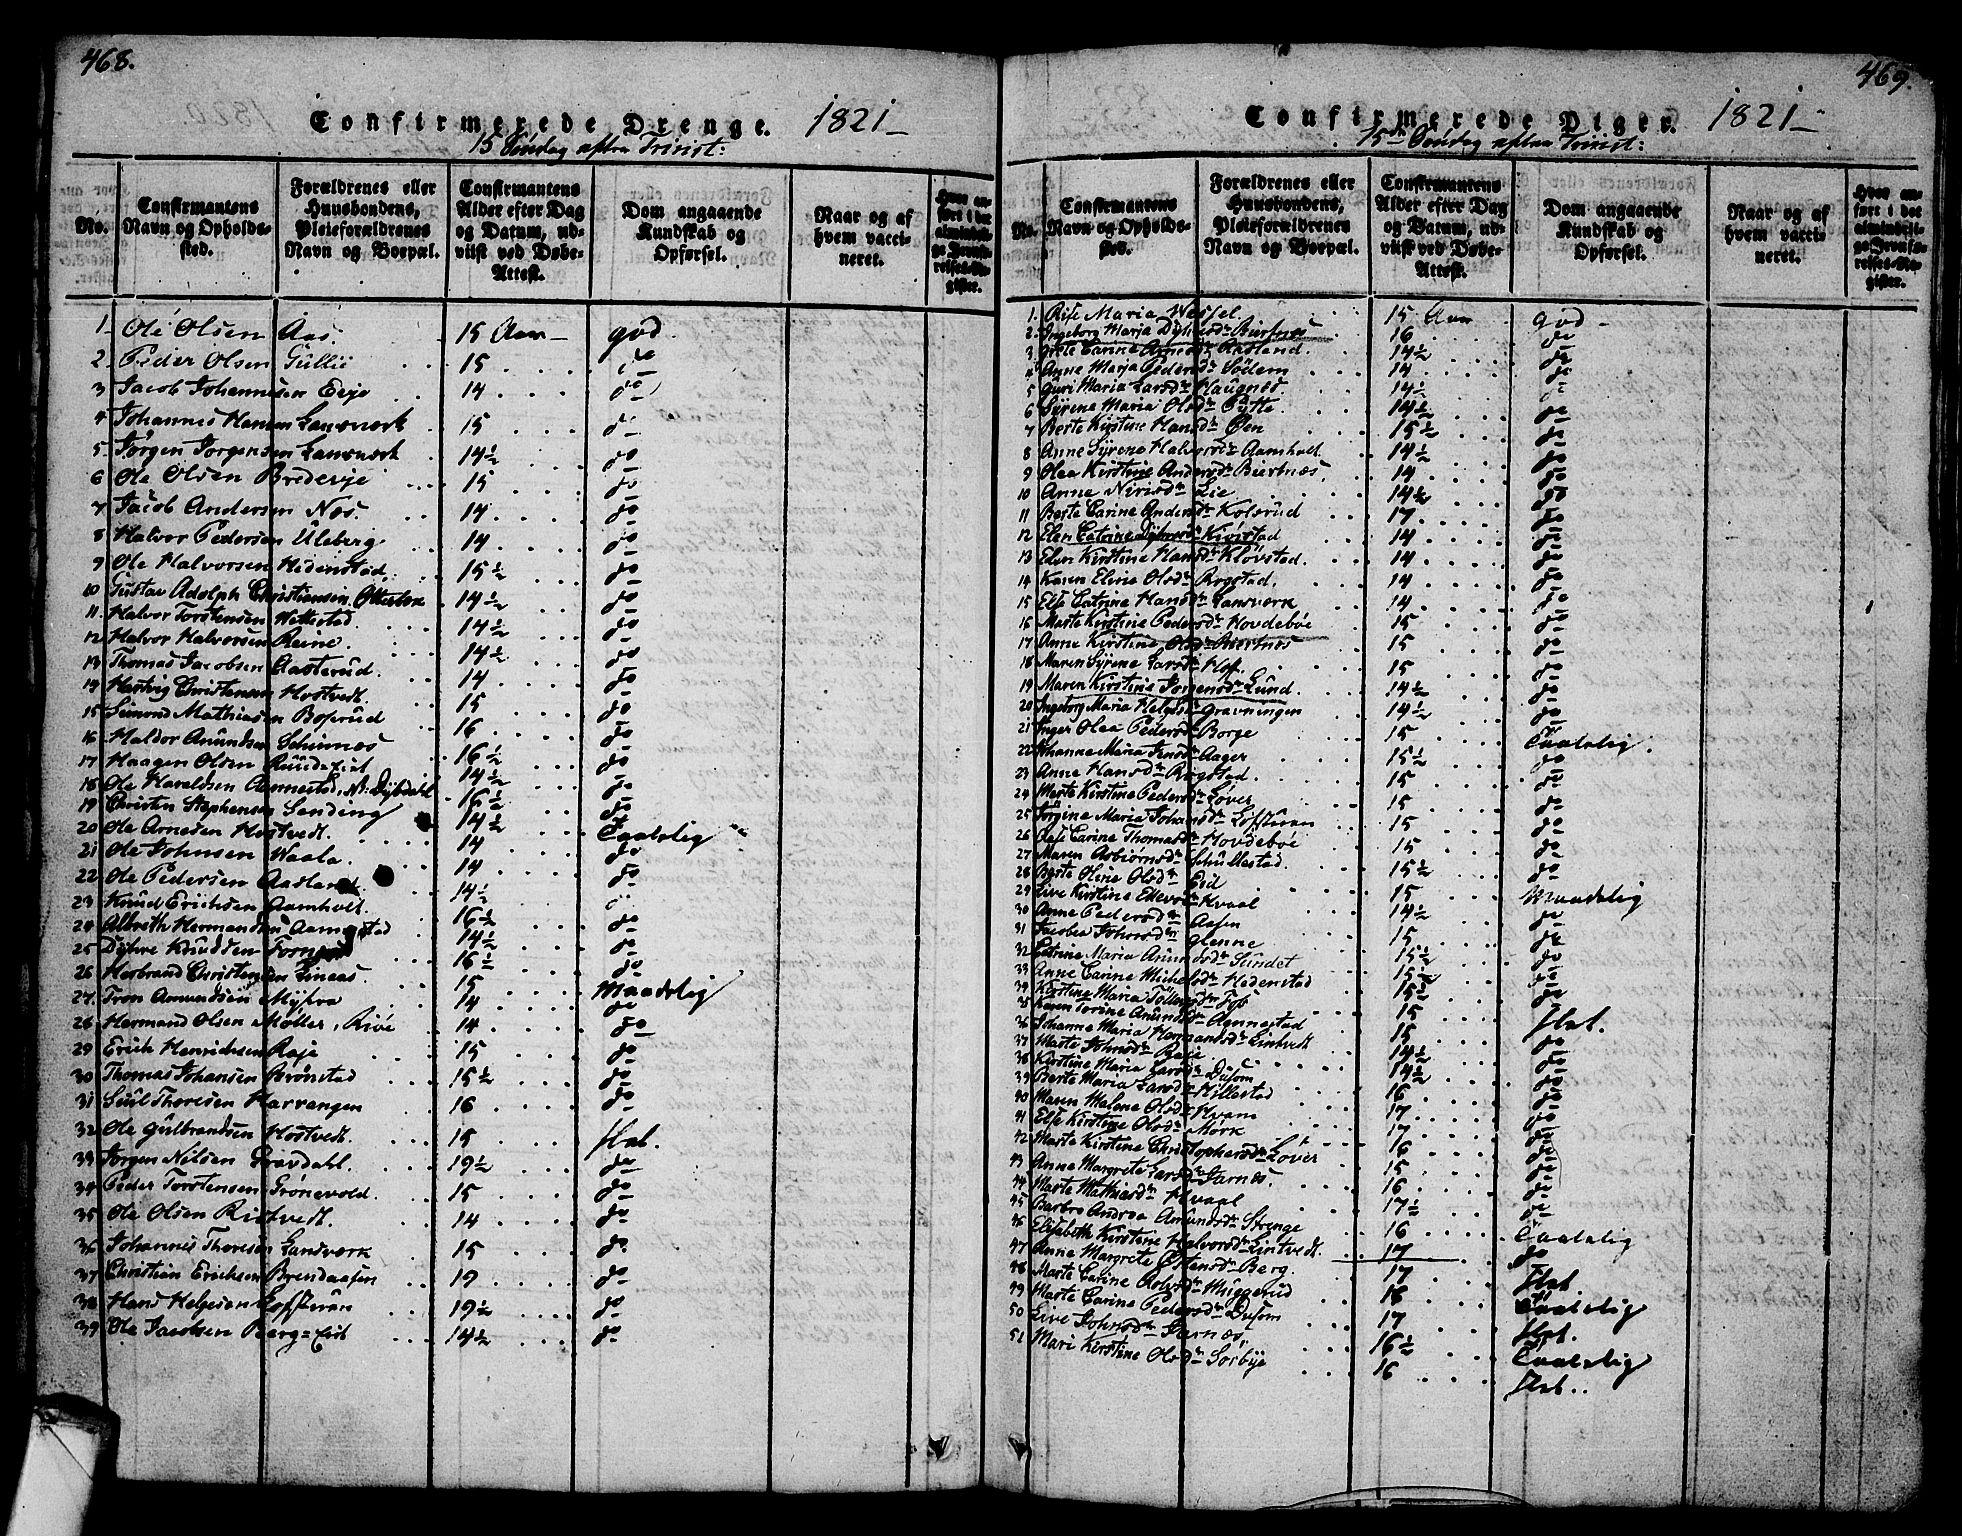 468.
Confirmerede Drenge. 1821
15 Søndag efter Trinit:
No.
Confirmantens Navn og Opholdssted.
Forældrenes eller Huusbondens, Pleieforældrenes Navn og Boepæl.
Confirmantens Alder efter Dag og Datum, udviist ved Døbe-Attest.
Dom angaaende Kundskab og Opførsel.
Naar og af hvem vaccineret.
1 Ole Olsen Aas. 15 Aar god.
2 Peder Olsen Gullie 15 do
3 Jacob Johannesen Eeje 14 do
4 Johannes Hansen Landværk 15 do
5 Jørgen Jørgensen Landværk 14½ do
6 Ole Olsen Bredeveje 15 do
7 Jacob Andersen Næs. 14 do
8 Halvor Pedersen Uleberg 14 do
9 Ole Halvorsen Hedenstad. 15½ do
10 Gustav Adolph Christiansen Otterbek 14½ do
11 Halvor Torstensen Wettestad. 14½ do
12 Halvor Halvorsen Reine. 14½ do
13 Thomas Jacobsen Aasterud. 14 do
14 Hartvig Christensen Hostvedt. 15 do
15 Simond Mathiasen Boserud 16 do
16 Haldor Amundsen Skinnæs 16½ do
17 Haagen Olsen Ruuds-Eiet 14½ do
18 Ole Haraldsen Aennestad, N: Dybdahl 16½ do
19 Christen Stephensen Sending 14½ do
20 Ole Arnesen Hostvedt. 14 Taalelig
21 Ole Johnsen Waala. 14 do
22 Ole Pedersen Aasland. 14½ do
23 Knud Erichsen Aamholt. 16½
24 Albreth Hermandsen Aamestad 14½ do
25 Dyhre Knudsen 16½ do
26 Herbrand Christensen 15 do
27 Tron Amundsen Myhra 14 Maadelig
28 Hermand Olsen Møller, 14 do
29 Erich Henrichsen Raje 15 do
30 Thomas Johansen Brønstad 15½ do
31 Thoresen Harvangen 16 do
32 Ole Gulbrandsen Hostvedt. 15 slet.
33 Jørgen Nilsen Gravdahl. 19½ do
34 Peder Torstensen Grønevold. 15 do
35 Ole Olsen Ristvedt. 14 do
36 Johannes Thoresen Landværk 15 do
37 Christian Erichsen Brendaasen 19 do
38 Hans Helgesen Lofsthuun 19½ do
39 Ole Jacobsen Berg-Eiet 14½ do
469.
Confirmerede Piger. 1821
15de Søndag efter Trinit:
No.
Confirmantens Navn og Opholdssted.
Forældrenes eller Huusbondens, Pleieforældrenes Navn og Boepæl.
Confirmantens Alder efter Dag og Datum, udviist ved Døbe-Attest.
Dom angaaende Kundskab og Opførsel.
Naar og af hvem vaccineret.
Hvor anført i det almindelige Jevnførelses-Register.
1. Rise Maria Wessel. 15 Aar god
2. Ingeborg Marja Dyhresdr Biertnæs 16 do
3 Grete Carine Arnesdr Aasland. 14½ do
4 Anne Marja Pedersdr Sødem 14 do
5 Guri Maria Larsdr Haugnæs 14½ do
6 Syrene Maria Olsdr Pytte. 14½ do
7 Berte Kirstine Hansdr Øen 15½ do
8 Anne Syrene Halvorsdr Aamholt. 14½ do
9 Olea Kirstine Andersdr Biertnæs. 14 do
10 Anne Nirisdr Lie 14½ do
11 Berte Carine Andersdr Kolsrud 17 do
12 Elen Catrine Dyhresdr Kløvstad 14 do
13 Elen Kirstine Hansdr Kløvstad. 14 do
14 Karen Eline Olsdr Rygstad. 14 do
15 Else Catrine Hansdr Landværk 14 do
16 Marte Kirstine Pedersdr Hovdebøe 15 do
17 Anne Kirstine Olsdr Biertnæs 15 do
18 Maren Syrene Larsdr Hof 15 do
19 Maren Kirstine Jorgensdr Lund. 14½ do
20 Ingeborg Maria Helgesdr Gravningen 14½ do
21 Inger Olea Pedersdr Borge 15 Taalelig.
22 Johanne Maria Jensdr Aager 15½ do
23 Anne Hansdr Rygstad. 15 do
24 Marte Kirstine Pedersdr Løver 15 do
25 Jørgine Maria Johansdr Lofsthuun 15 do
26 Carine Thomasdr Hovdebøe 15 do
27 Maren Asbiørnsdr Skullestad. 15½ do
28 Berte Oline Olsdr Eid 15 Maadelig
29 Live Kirstine Ellevsdr Kvaal 14½ do
30 Anne Pedersdr Aasen 15 do
31 Jacobea Johnsdr Glenne 15½ do
32 Catrine Maria Amundsdr Sundet 15½ do
33 Anne Carine Michelsdr Hedenstad 15½ do
34 Kirstine Maria Tollevsdr Fos 15 slet.
35 Karen Torine Amundsdr Aennestad 15 do
36 Johanne Maria Hermandsdr Lintvedt 14½ do
37 Marte Johnsdr Raje 14½ do
38 Kirstine Maria Larsdr Dusom 16 do
39 Berte Maria Larsdr Hillestad 17 do
40 Maren Malene Olsdr Kvam 17 do
41 Else Kirstine Olsdr Mørk 16 do
42 Marte Kirstine Christophersdr Løver 15 do
43 Anne Margrete Larsdr Jarnæs. 16 do
44 Marte Mathiasdr Kvaal 17½ do
45 Barbro Andrea Amundsdr Strenge 16 Taalelig
46 Elisabeth Kirstine Halvorsdr Lintvedt. 17 do
47 Anne Margrete Østensdr Berg. 17 slet
48 Marte Carine Rolvsdr Muggerud 16 Taalelig
49 Marte Carine Pedersdr Dusom 17 slet.
50 Live Johnsdr Jarnæs. 16½ Taalelig
51 Mari Kirstine Olsdr Sørbye 16 slet.